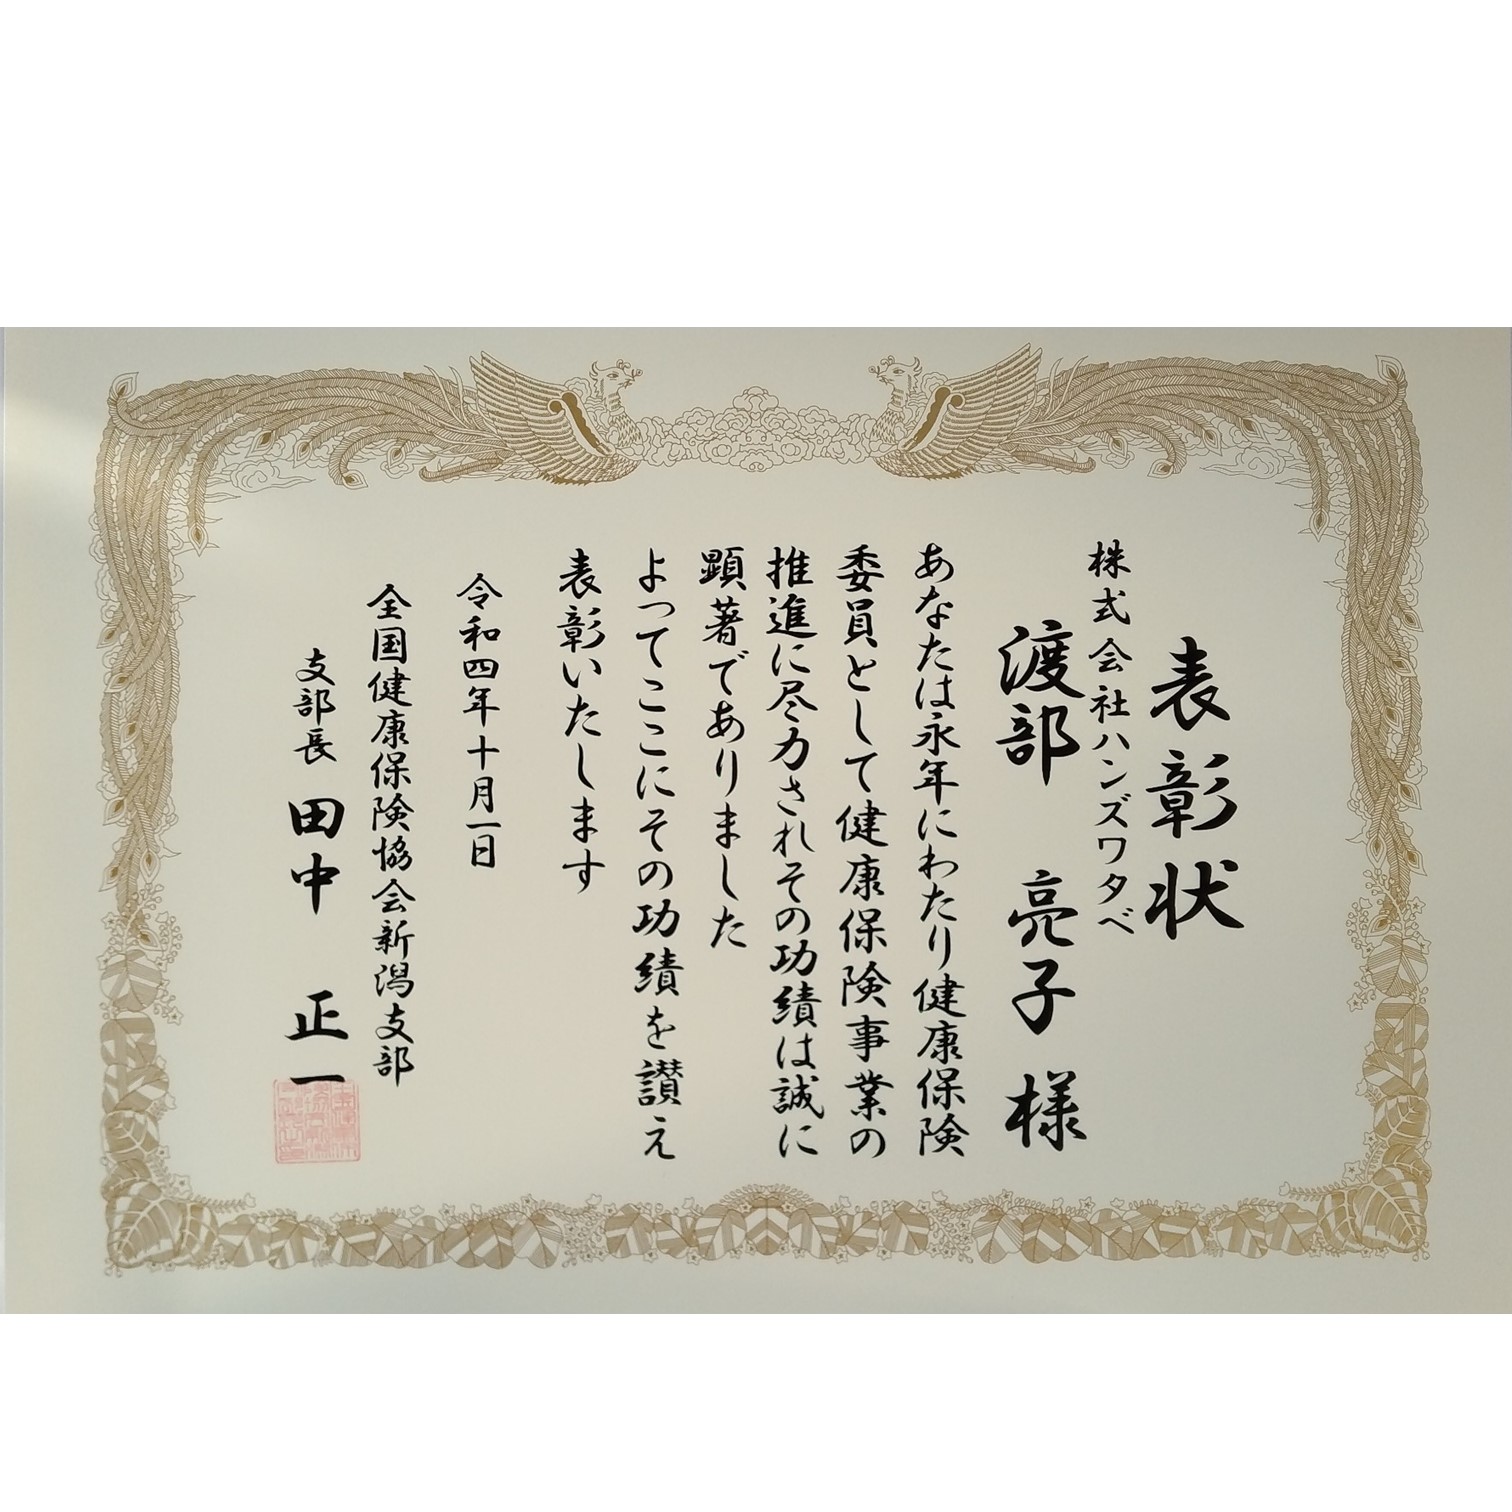 表彰状
株式会社ハンズワタベ
渡部 亮子 様
あなたは永年にわたり健康保険
委員として健康保険事業の
推進に尽力されその功績は誠に
顕著でありました
よってここにその功績を讃え
表彰いたします
令和四年十月一日
全国健康保険協会新潟支部
支部長 田中 正一